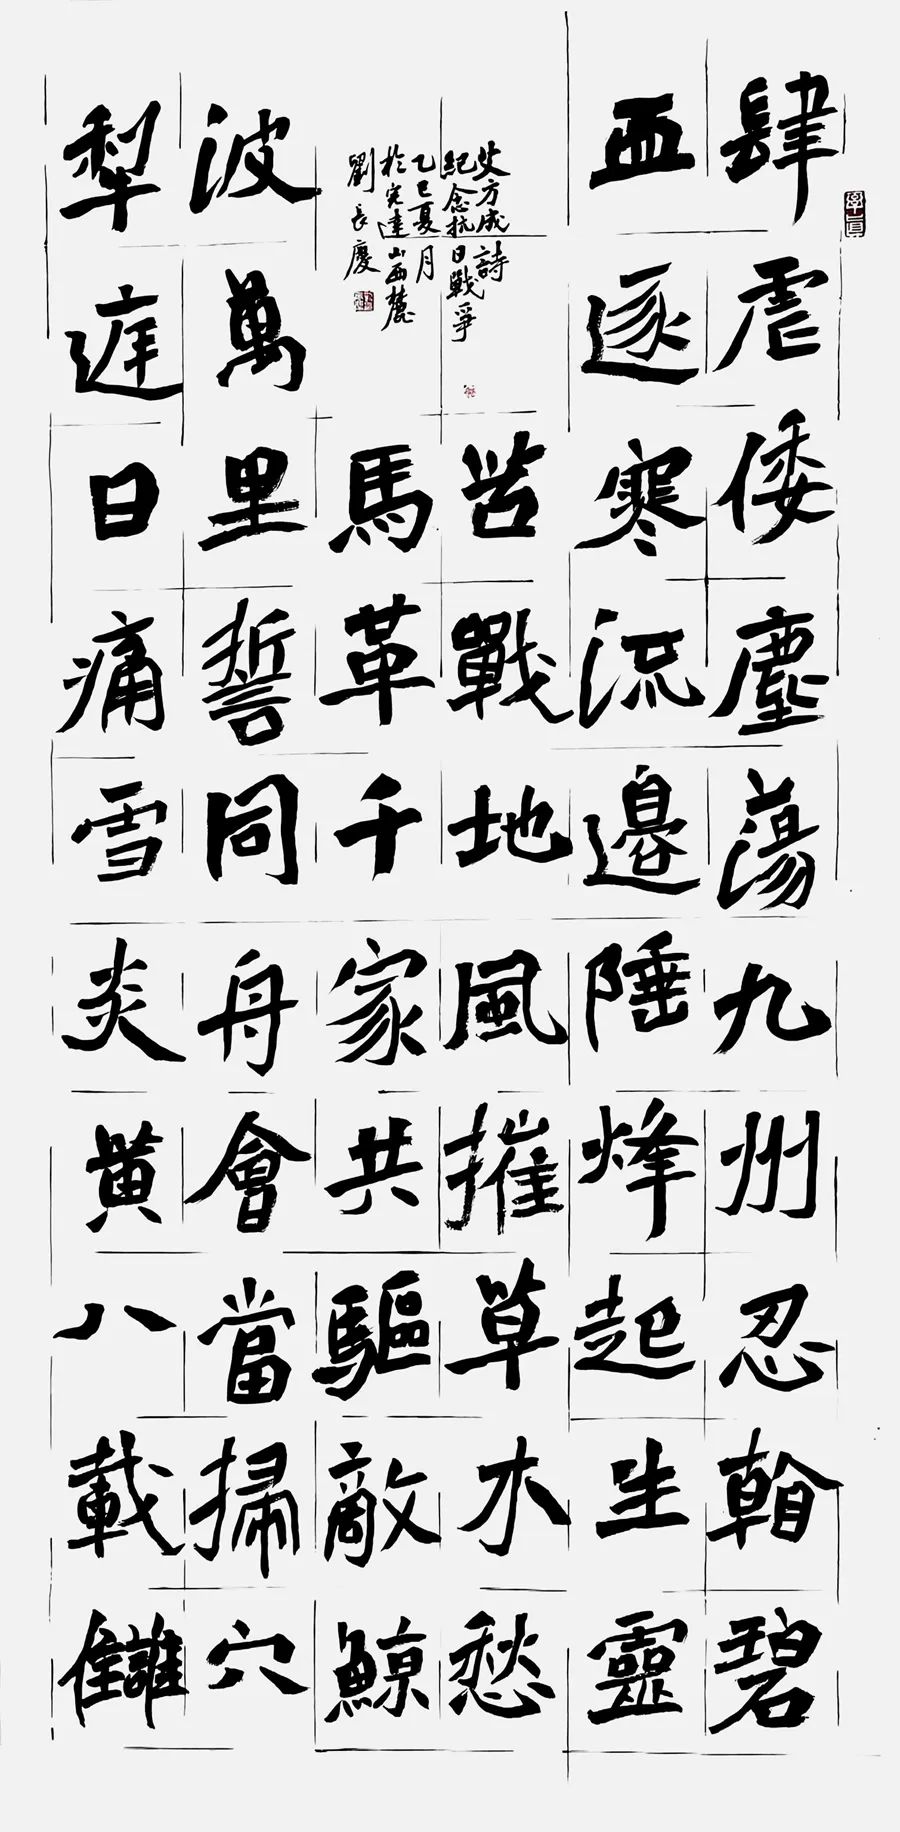 肆虐倭塵蕩九州忍看碧
血逐寒流邊陲烽起生靈
苦戰地風摧草木愁
馬革千家共驅敵鯨
波萬里誓同舟會當掃穴
犁庭日痛雪炎黃八載讎
艾方成詩
紀念抗日戰爭
乙巳夏月
於完達山西麓
劉長慶